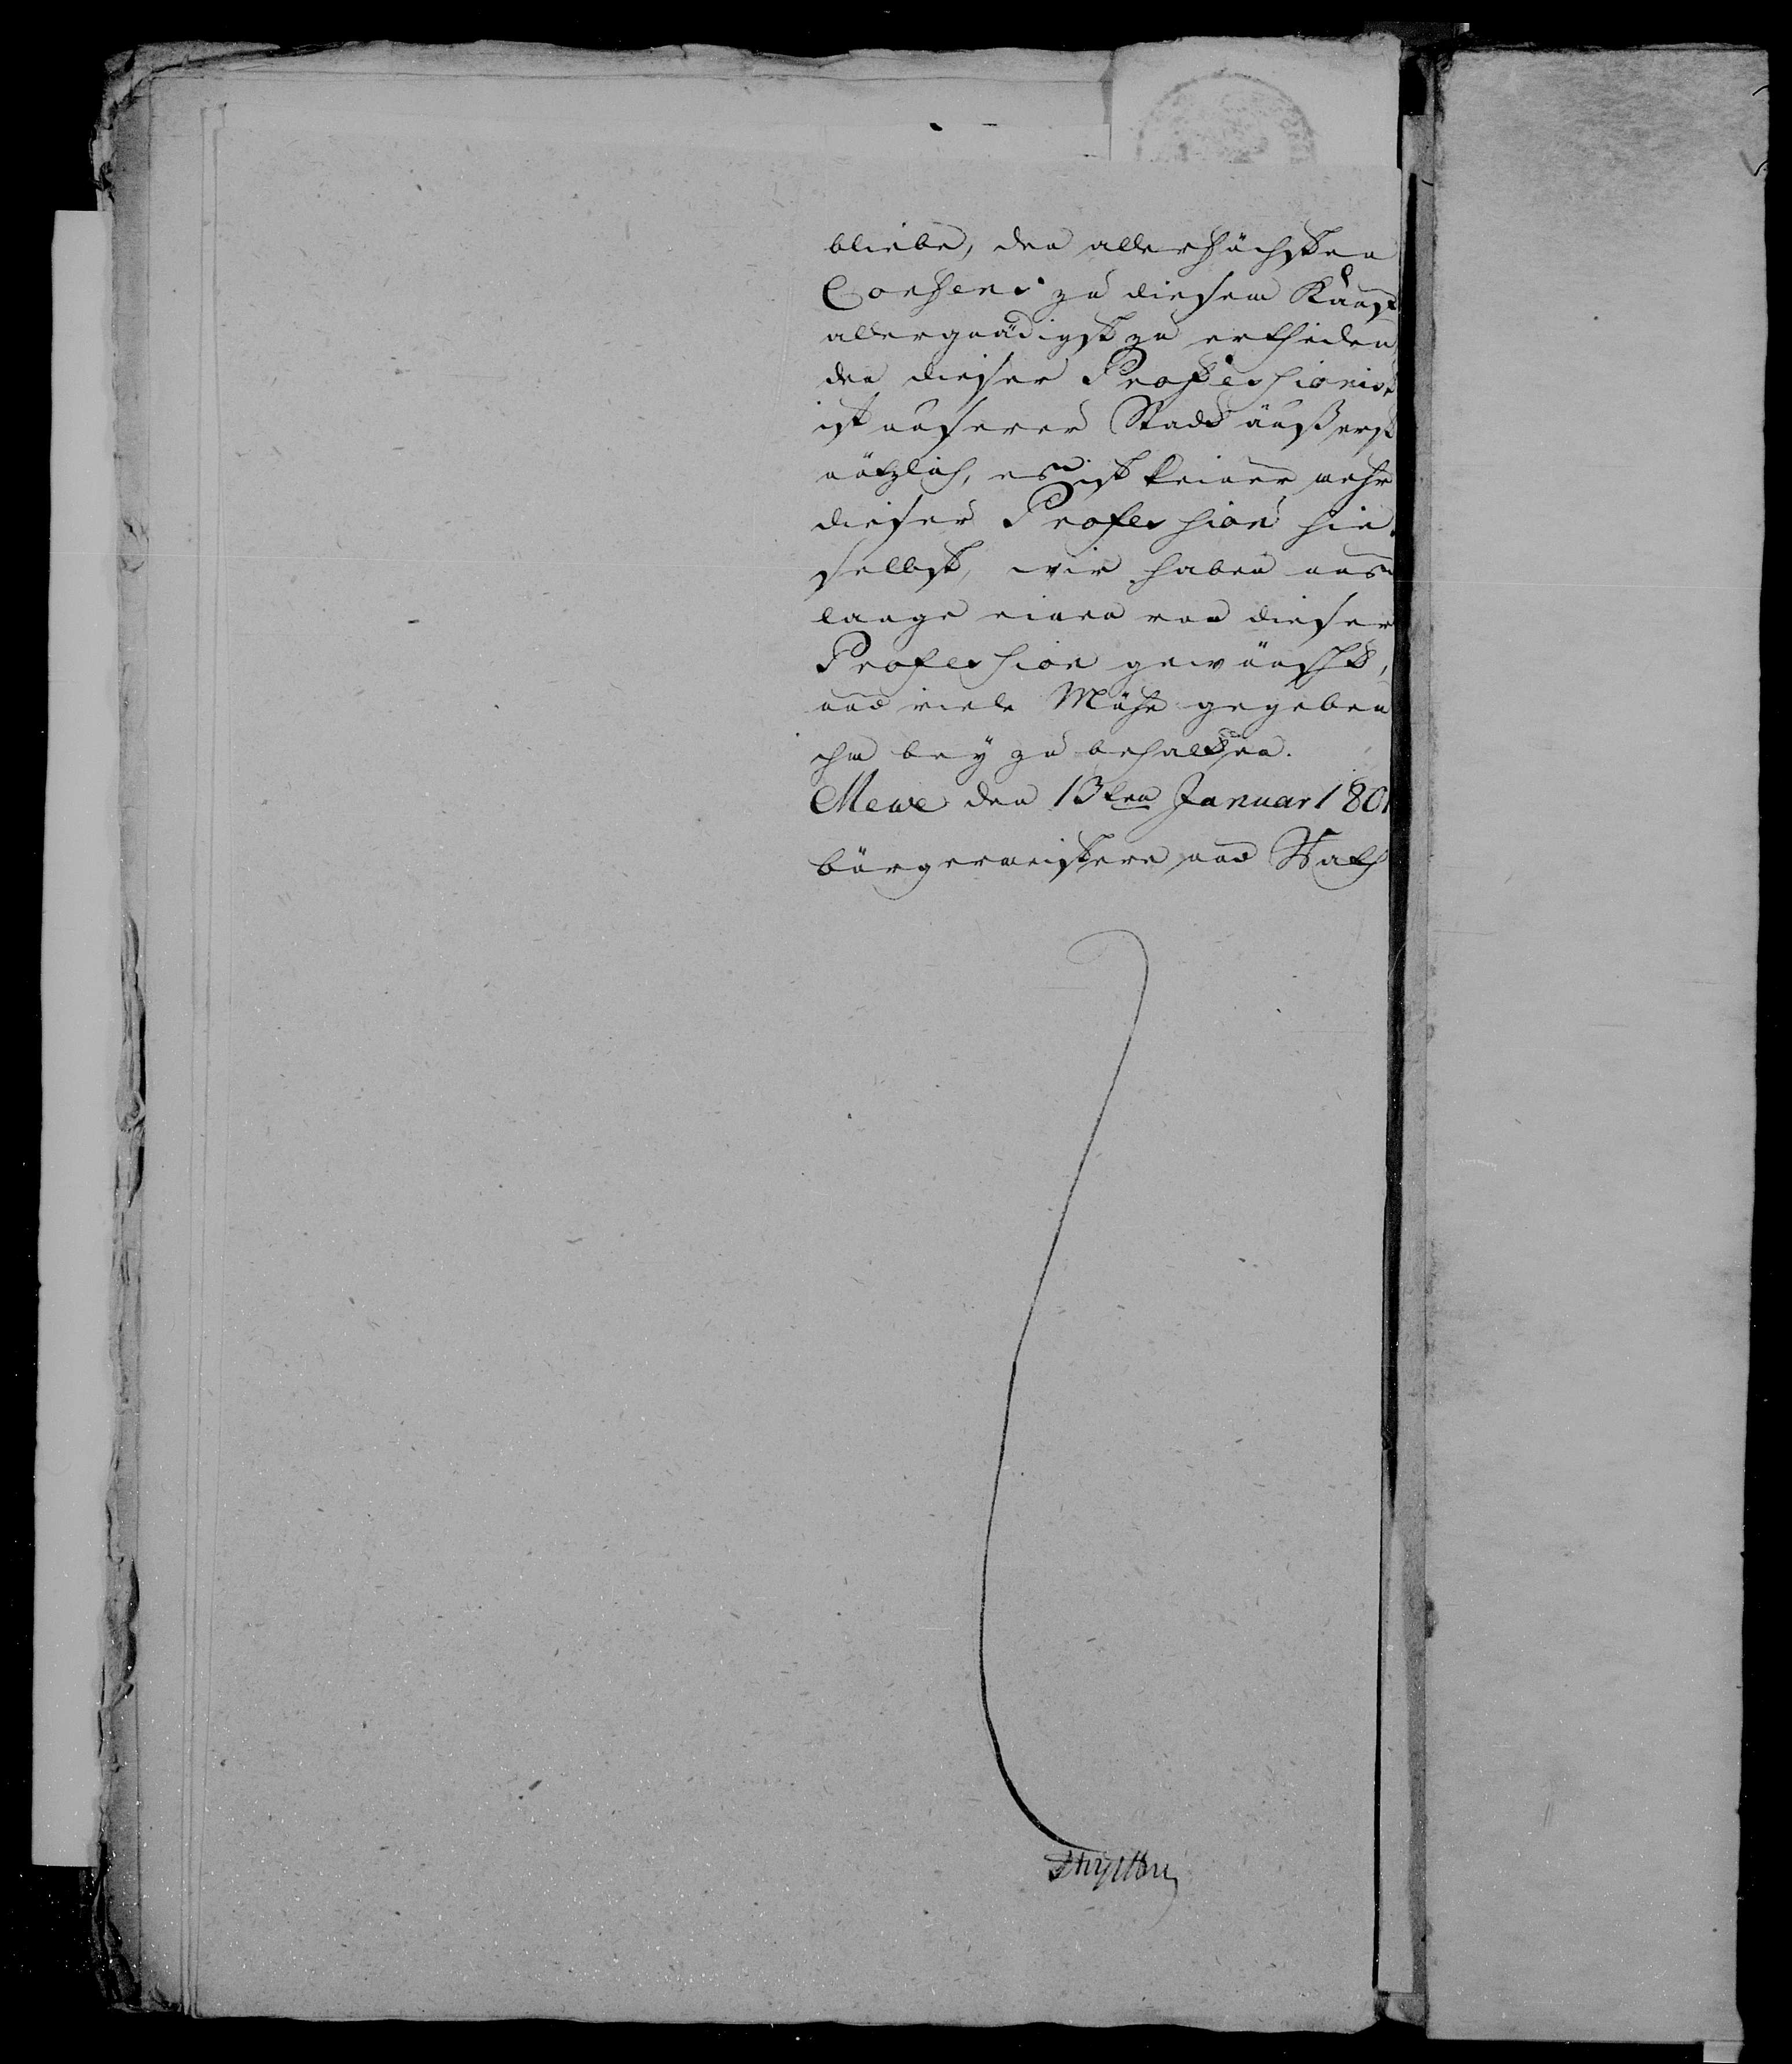 bliebe, den allerhöchsten
Consens zu diesem Kauf
allergnädigst zu ertheilen
den dieser Professionist
ist unserer Stadt äußerst
nützlich, es ist keiner mehr
dieser Profession hie-
selbst, wir haben uns
lange einen von dieser
Profession gewünscht,
und viele Mühe gegeben
ihn bey zu behalten.
Mewe den 13ten Januar 1801
bürgermeistere und Rath